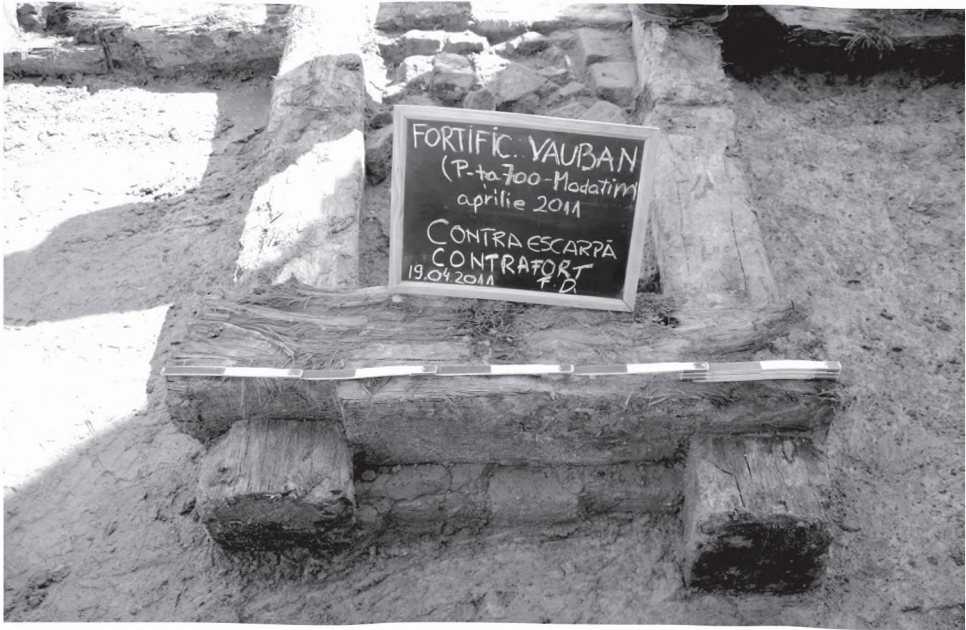 FORTIFIC. VAUBAN
(P-ța 700-Modatim
aprilie 2011
CONTRAESCARPĂ
CONTRAFORT
19.04.2011 F.D.